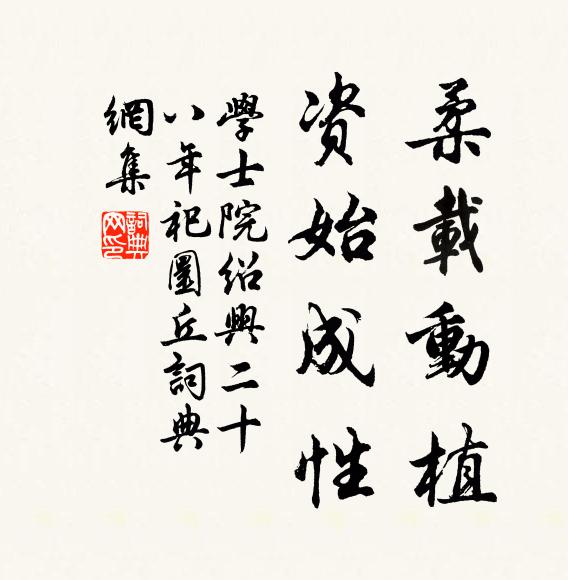 柔載動植
資始成性
學士院紹興二十
八年祀圜丘詞典
網集
詞典網印